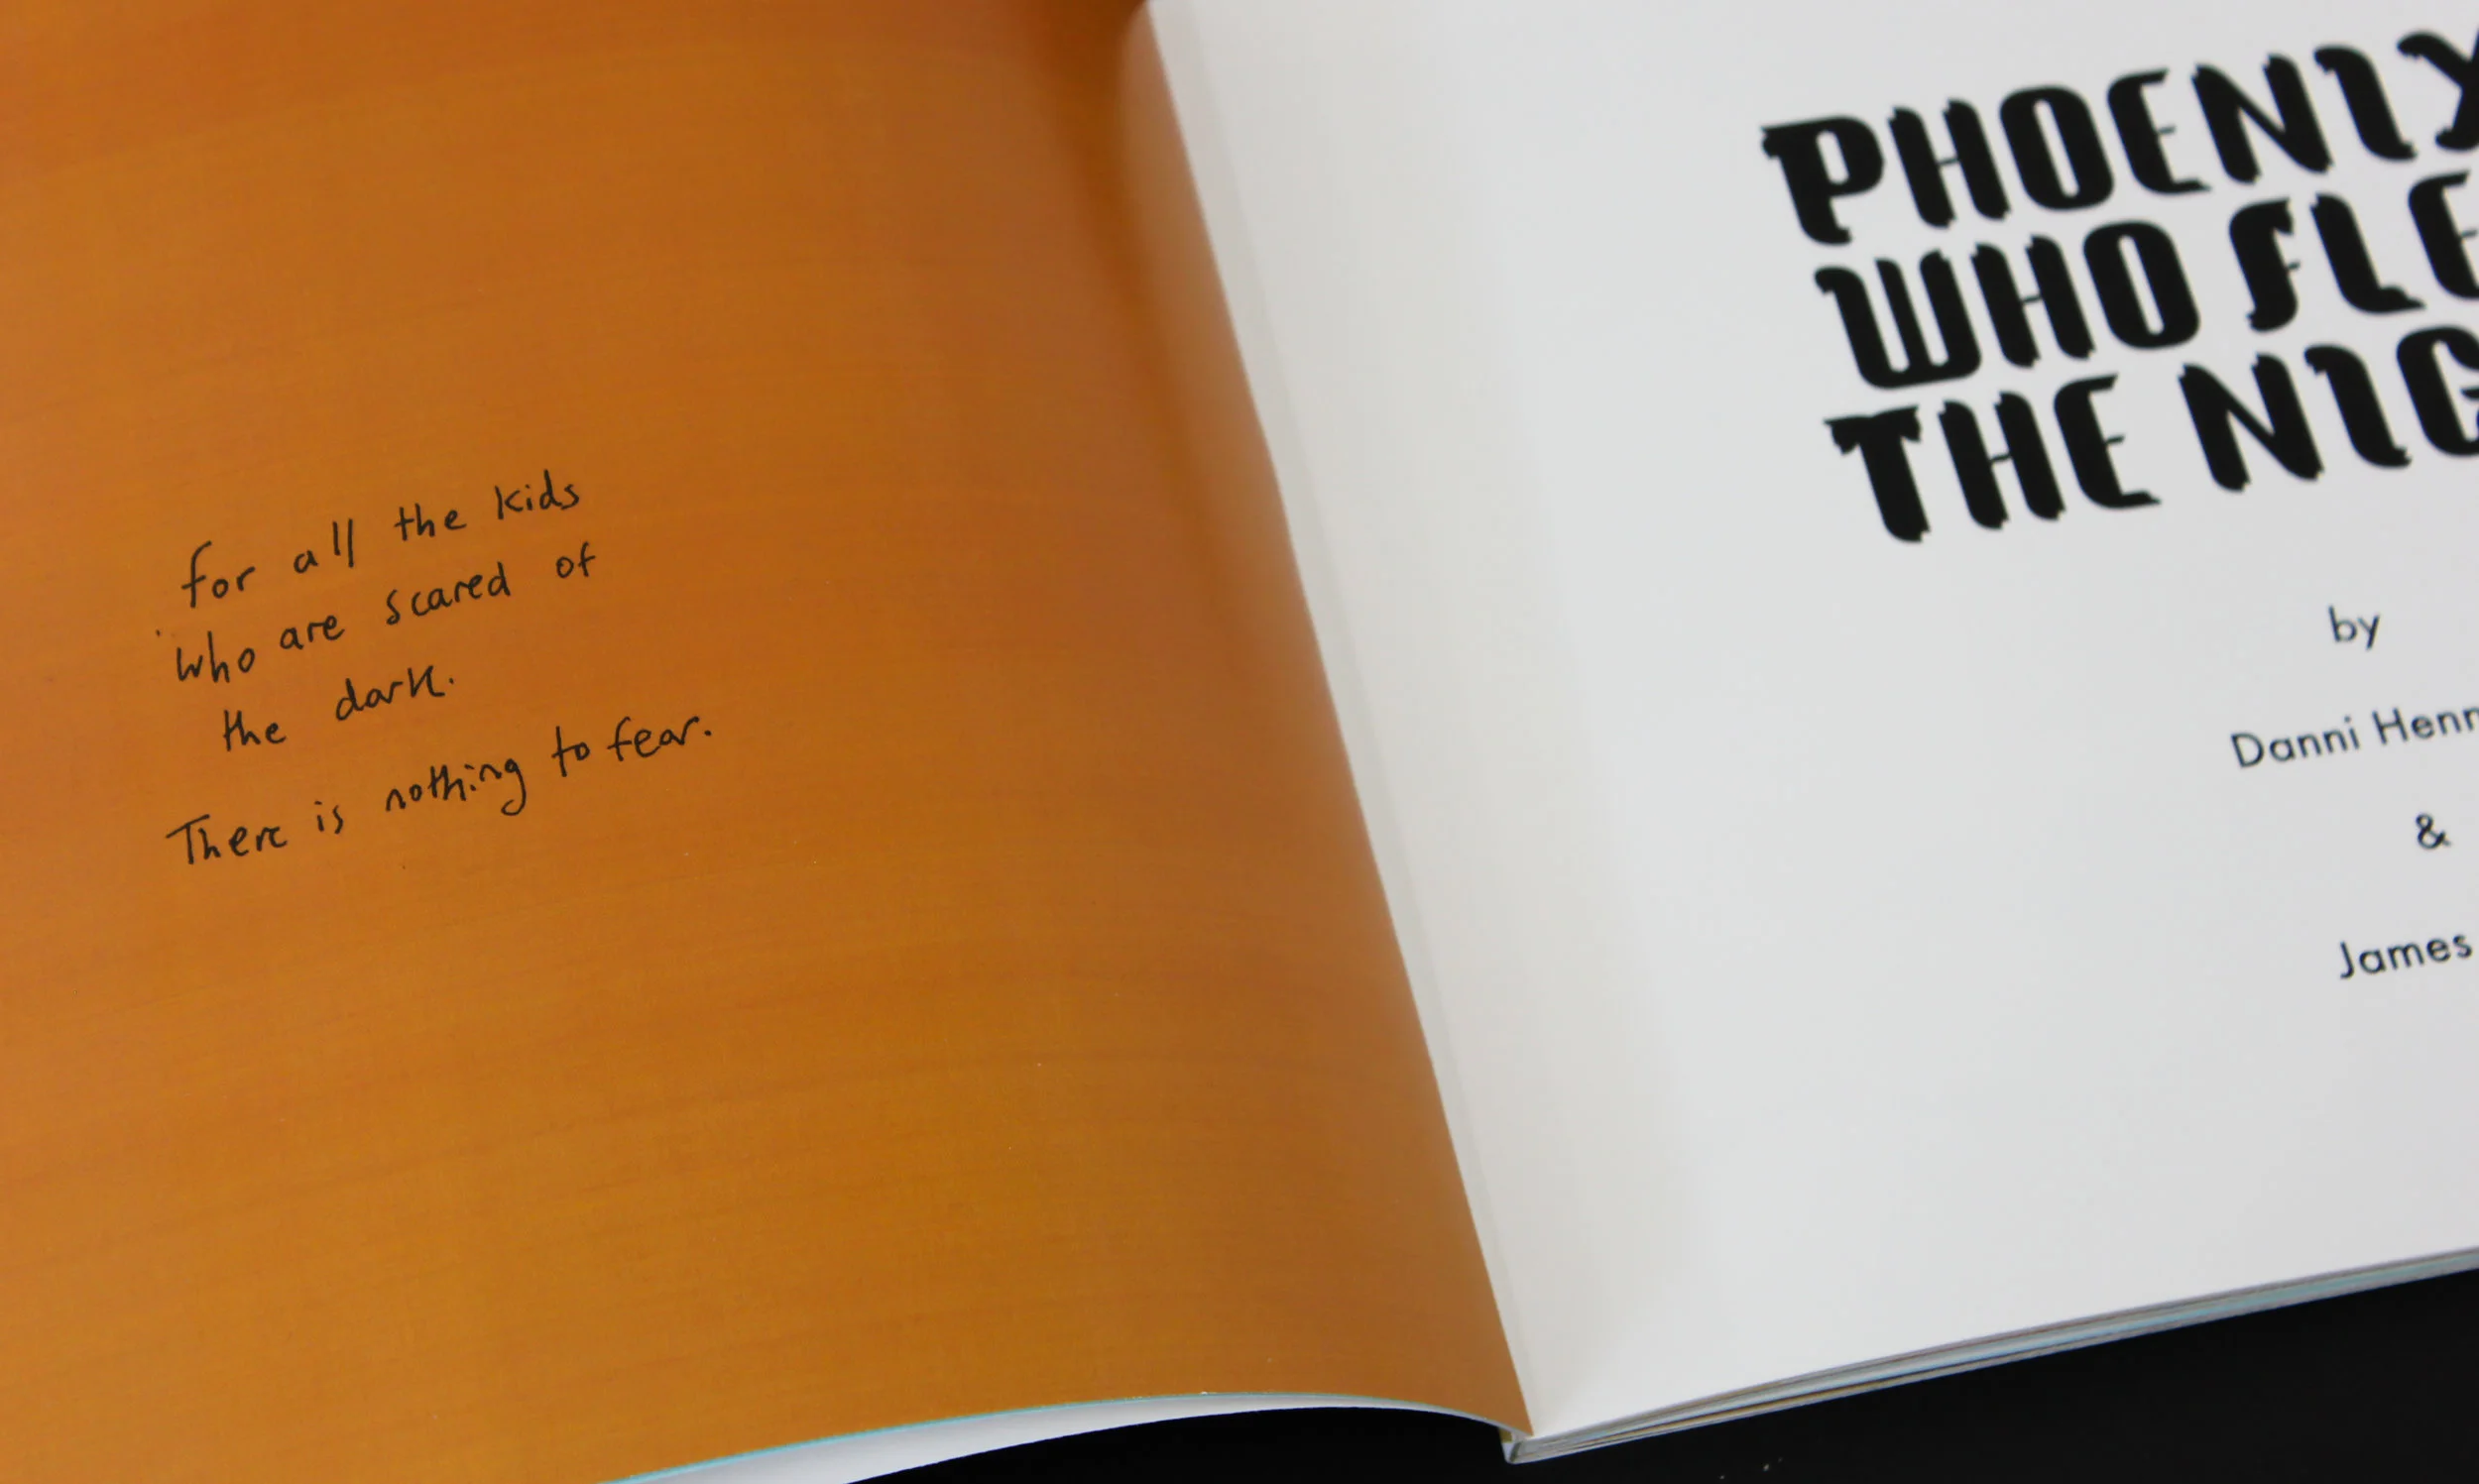 for all the kids
who are scared of
the dark.
There is nothing to fear.
PHOENIX
WHO FLE
THE NIG
by
Danni Henn
&
James